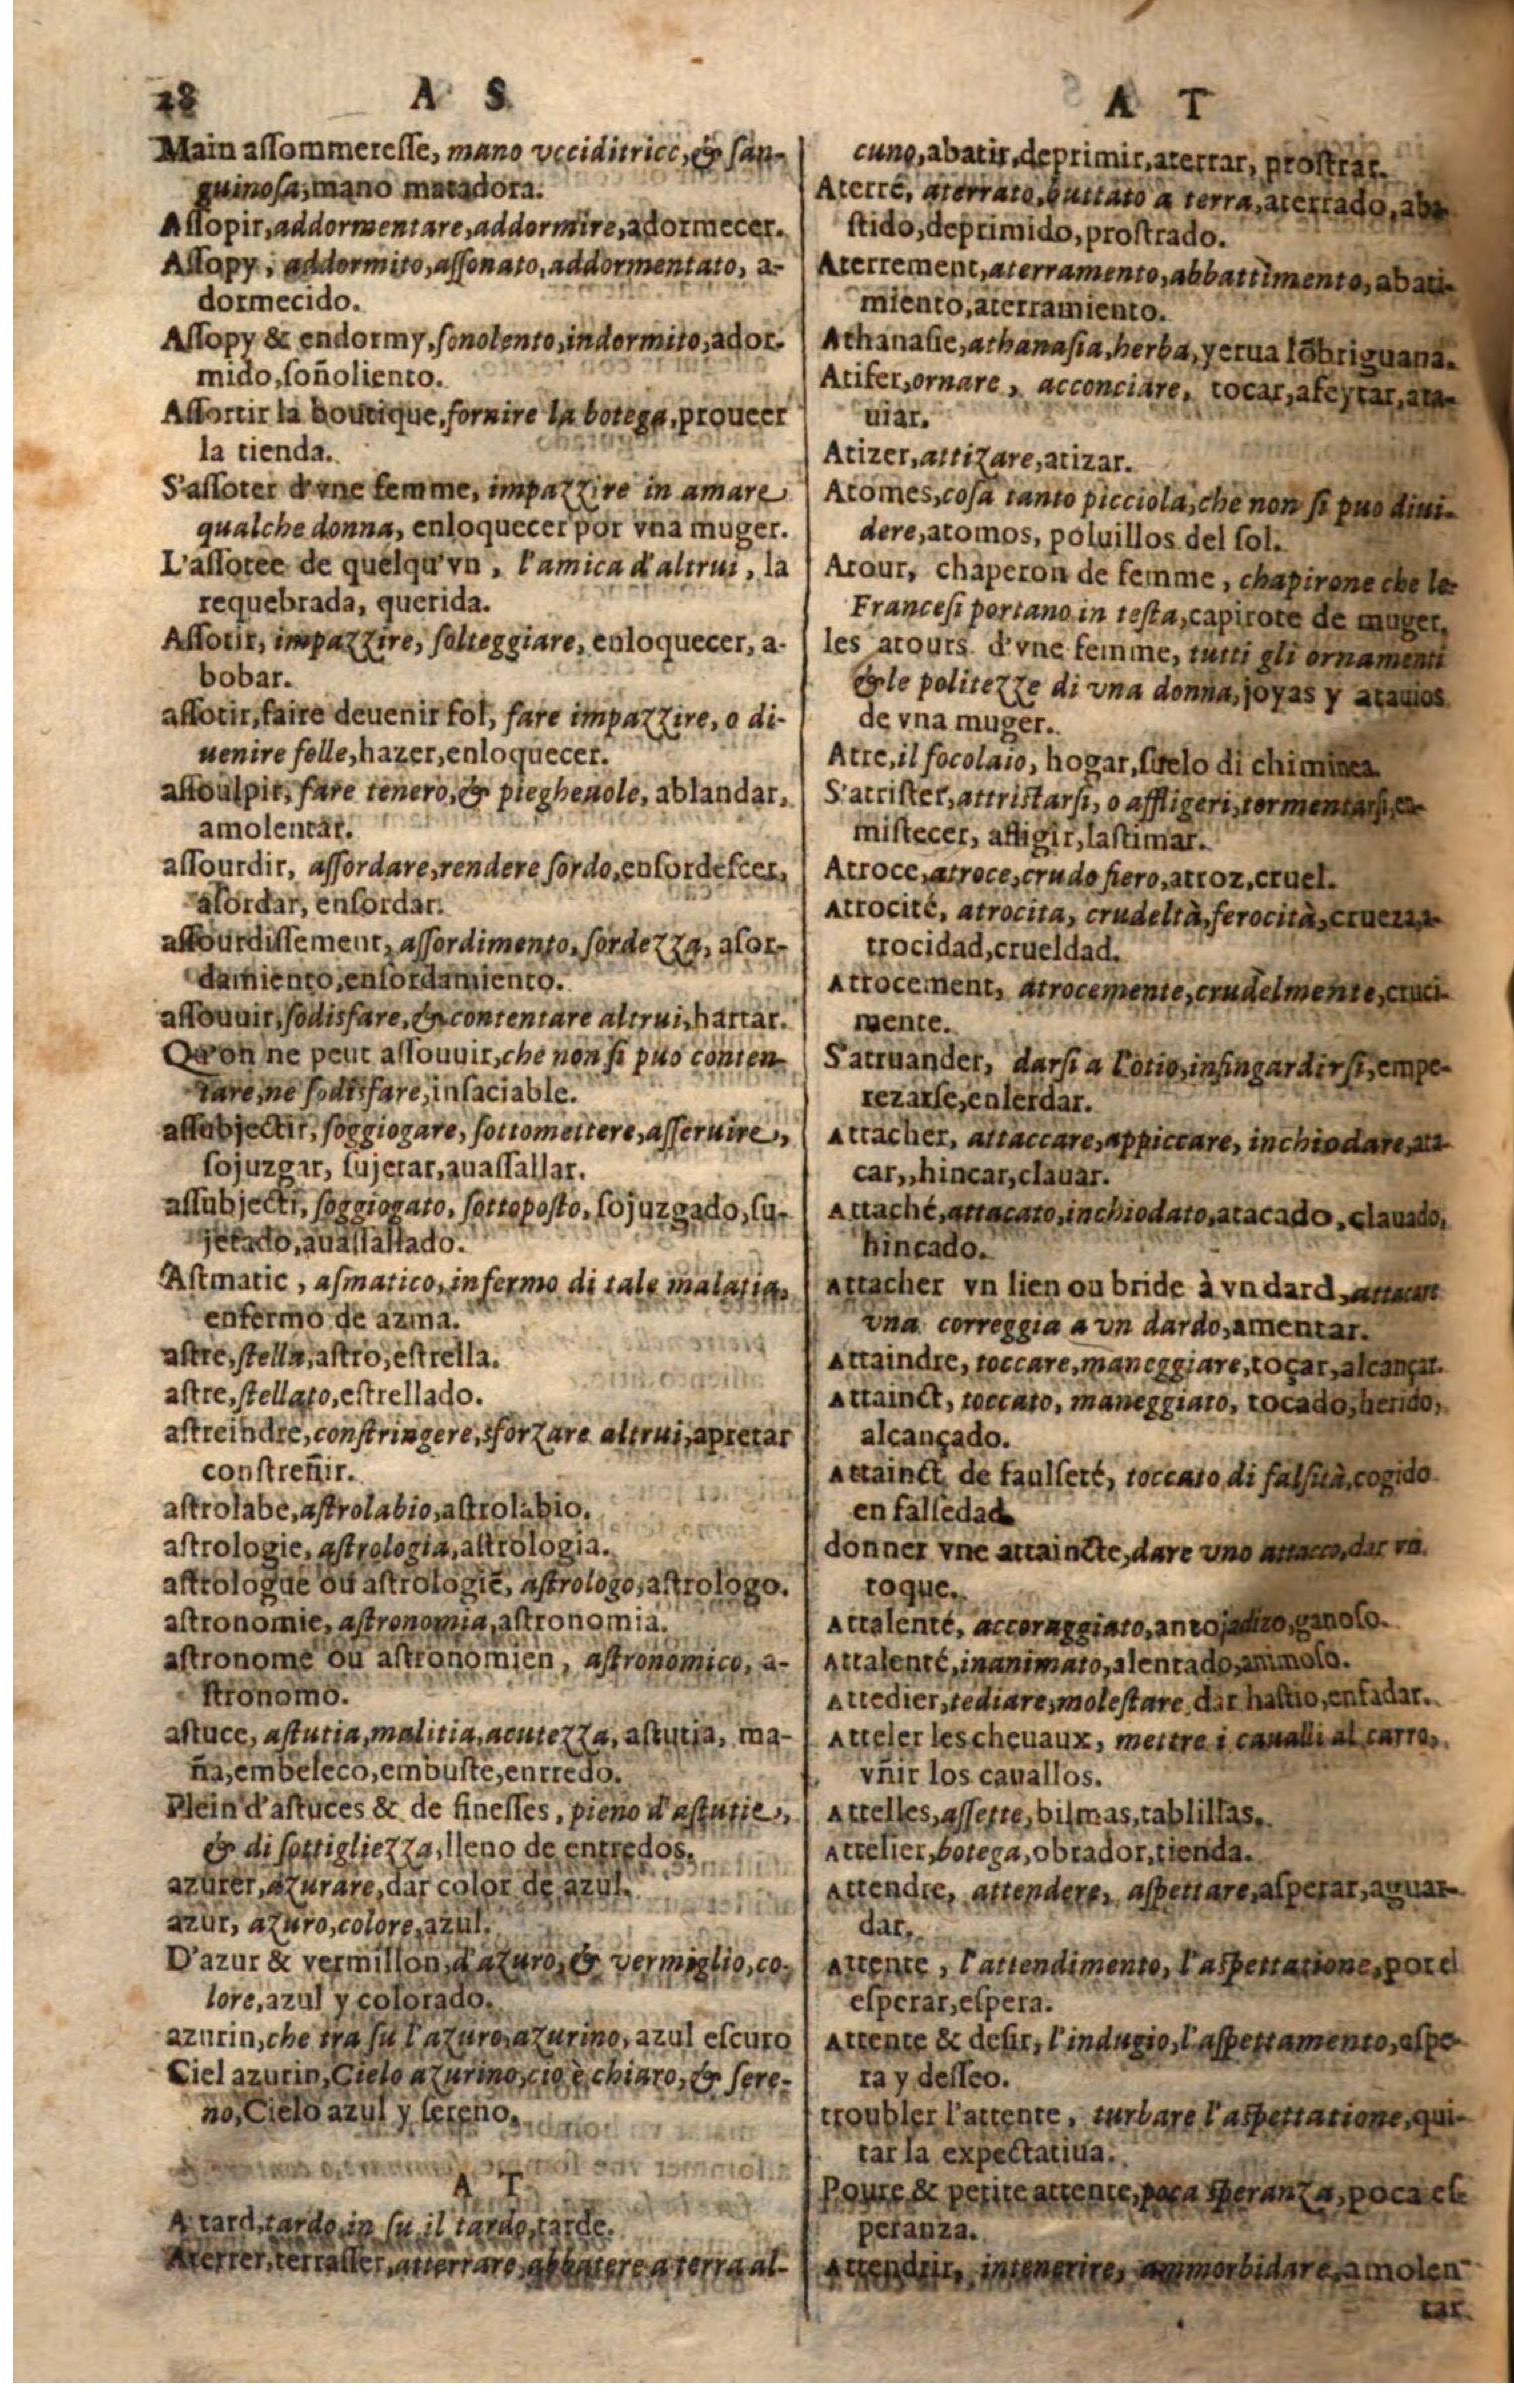 28 A S
Main assommeresse, mano ucciditrice, & san-
guinosa, mano matadora.
Assopir, addormentare, addormire, adormecer.
Assopy, addormito, assonato, addormentato, a-
dormecido.
Assopy & endormy, sonolento, indormito, ador-
mido, soñoliento.
Assortir la boutique, fornire la botega, proueer
la tienda.
S'assoter d'vne femme, impazzire in amare
qualche donna, enloquecer por vna muger.
L'assotee de quelqu'vn, l'amica d'altrui, la
requebrada, querida.
Assotir, impazzire, folteggiare, enloquecer, a-
bobar.
assotir, faire deuenir fol, fare impazzire, o di-
uenire folle, hazer, enloquecer.
assoulpir, fare tenero, & pieghenole, ablandar,
amolentar.
assourdir, assordare, rendere sordo, ensordescer,
asordar, ensordar.
assourdissement, assordimento, sordezza, asor-
damiento, ensordamiento.
assouuir, sodisfare, & contentare altrui, hartar.
Qu'on ne peut assouuir, che non si puo conten-
tare, ne sodisfare, insaciable.
assubjectir, soggiogare, sottomettere, asseruire,
sojuzgar, sujetar, auassallar.
assubjecti, soggiogato, sottoposto, sojuzgado, su-
jetado, auassallado.
Astmatic, asmatico, infermo di tale malatia,
enfermo de azma.
astre, stella, astro, estrella.
astre, stellato, estrellado.
astreindre, constringere, sforzare altrui, apretar
constreñir.
astrolabe, astrolabio, astrolabio.
astrologie, astrologia, astrologia.
astrologue ou astrologiē, astrologo, astrologo.
astronomie, astronomia, astronomia.
astronome ou astronomien, astronomico, a-
stronomo.
astuce, astutia, malitia, acutezza, astutia, ma-
ña, embeleco, embuste, enrredo.
Plein d'astuces & de finesses, pieno d'astutie,
& di sottigliezza, lleno de entredos.
azurer, azurare, dar color de azul.
azur, azuro, colore, azul.
D'azur & vermillon, d'azuro, & vermiglio, co-
lore, azul y colorado.
azurin, che tra su l'azuro, azurino, azul escuro
Ciel azurin, Cielo azurino, cio è chiaro, & sere-
no, Cielo azul y sereno.
A T
A tard, tardo, in su il tardo, tarde.
Aterrer, terrasser, atterrare, abbatere a terra al-
A T
cuno, abatir, deprimir, aterrar, prostrar.
Aterré, aterrato, buttato a terra, aterrado, aba-
stido, deprimido, prostrado.
Aterrement, aterramento, abbattimento, abati-
miento, aterramiento.
Athanasie, athanasia, herba, yerua lōbriguana.
Atifer, ornare, acconciare, tocar, afeytar, ata-
uiar.
Atizer, attizare, atizar.
Atomes, cosa tanto picciola, che non si puo diui-
dere, atomos, poluillos del sol.
Atour, chaperon de femme, chapirone che le
Francesi portano in testa, capirote de muger,
les atours d'vne femme, tutti gli ornamenti
& le politezze di una donna, joyas y atauios
de vna muger.
Atre, il focolaio, hogar, suelo di chiminea
S'atrister, attristarsi, o affligeri, tormentarsi, en-
mistecer, afligir, lastimar.
Atroce, atroce, crudo fiero, atroz, cruel.
Atrocité, atrocita, crudeltà, ferocità, crueza, a-
trocidad, crueldad.
Atrocement, atrocemente, crudelmente, cruci-
mente.
S'atruander, darsi a l'otio, insingardirsi, empe-
rezarse, enlerdar.
Attacher, attaccare, appiccare, inchiodare, ata-
car,, hincar, clauar.
Attaché, attacato, inchiodato, atacado, clauado,
hincado.
Attacher vn lien ou bride à vn dard, attacare
una correggia a un dardo, amentar.
Attaindre, toccare, maneggiare, toçar, alcançar.
Attainct, toccato, maneggiato, tocado, herido,
alcançado.
Attainct de faulseté, toccato di falsità, cogido
en falsedad
donner vne attaincte, dare uno attacco, dar vn
toque.
Attalenté, accoraggiato, antojadizo, ganoso.
Attalenté, inanimato, alentado, animoso.
Attedier, tediare, molestare, dar hastio, enfadar.
Atteler les cheuaux, mettre i caualli al carro,
vñir los cauallos.
Attelles, assette, bilmas, tablillas.
Attelier, botega, obrador, tienda.
Attendre, attendere, aspettare, asperar, aguar-
dar.
Attente, l'attendimento, l'aspettatione, por el
esperar, espera.
Attente & desir, l'indugio, l'aspettamento, espe-
ra y desseo.
troubler l'attente, turbare l'aspettatione, qui-
tar la expectatiua.
Poure & petite attente, poca speranza, poca es
peranza.
Attendrir, intenerire, ammorbidare, amolen-
tar.